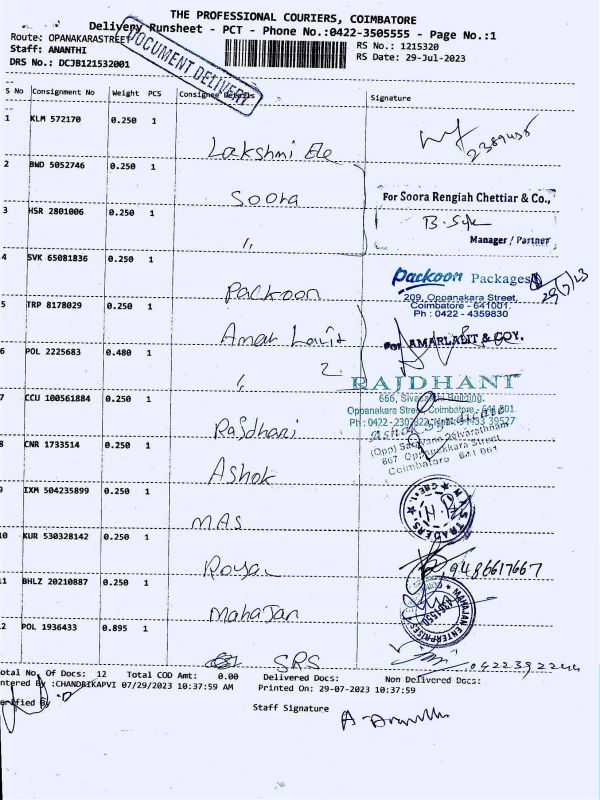 THE PROFESSIONAL COURIERS, COIMBATORE
Delivery Runsheet - PCT - Phone No.:0422-3505555 - Page No.:1
Route: OPANAKARASTREET
RS No.: 1215320
Staff: ANANTHI
RS Date: 29-Jul-2023
DRS No.: DCJB121532001
DOCUMENT DELIVERY
S No Consignment No Weight PCS Consignee Details Signature
1 KLM 572170 0.250 1
Lakshmi Ele
2 BWD 5052746 0.250 1
Soora
For Soora Rengiah Chettiar & Co.,
3 HSR 2801006 0.250 1
〃
Manager / Partner
4 SVK 65081836 0.250 1
Packoon
Packoon Packages
29/7/23
209, Oppanakara Street,
Coimbatore - 641001.
Ph : 0422 - 4359830
5 TRP 8178029 0.250 1
Amar Lalit
2
For AMARLALIT & COY.
6 POL 2225683 0.480 1
〃
RAJDHANI
Oppanakara Street, Coimbatore - 641 001.
7 CCU 100561884 0.250 1
Rajdhani
Ashok Syndicate
667 Oppanakkara Street
Coimbatore 641 001
8 CNR 1733514 0.250 1
Ashok
9 IXM 504235899 0.250 1
MAS
MAS TRADERS
10 KUR 530328142 0.250 1
Royal
9486617667
11 BHLZ 20210887 0.250 1
Mahajan
MAHAJAN ENTERPRISES
12 POL 1936433 0.895 1
SRS
Total No. Of Docs: 12 Total COD Amt: 0.00 Delivered Docs: Non Delivered Docs:
Entered By :CHANDRIKAPVI 07/29/2023 10:37:59 AM Printed On: 29-07-2023 10:37:59
Verified By
Staff Signature